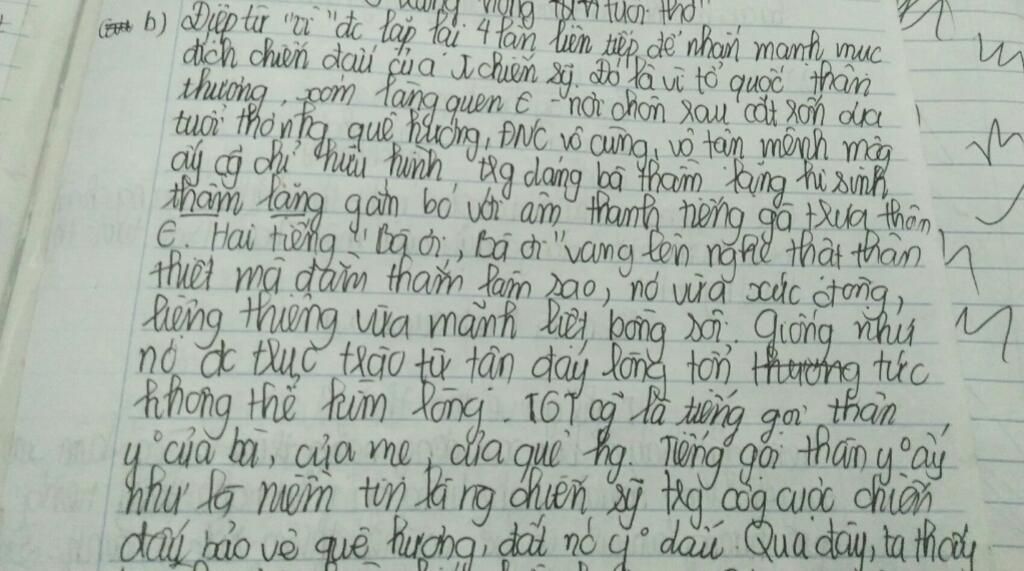 tuổi thơ"
b) Điệp từ "vì" đc lặp lại 4 lần liên tiếp để nhấn mạnh mục
đích chiến đấu của chiến sỹ. Đó là vì tổ quốc thân
thương, xóm làng quen € - nơi chôn rau cắt rốn của
tuổi thơ, quê hương, ĐNC vô cùng, vô tận mênh mông
ấy cg chỉ hữu hình trg dáng bà thầm lặng hi sinh
thầm lặng gắn bó với âm thanh tiếng gà trưa thân
€. Hai tiếng "Bà ơi, Bà ơi" vang lên nghe thật thân
thiết mà đằm thắm làm sao, nó vừa xúc động,
liêng thiêng vừa mãnh liệt, bỏng sôi. Giống như
nó đc trực trào từ tận đáy lòng tổn thương tức
không thể kìm lòng. TGT cg là tiếng gọi thân
yº của bà, của mẹ, của quê hg. Tiếng gọi thân yº ấy
như là niềm tin là ng chiến sỹ trg côg cuộc chiến
đấu bảo vệ quê hương, đất nc yº dấu. Qua đây, ta thấy